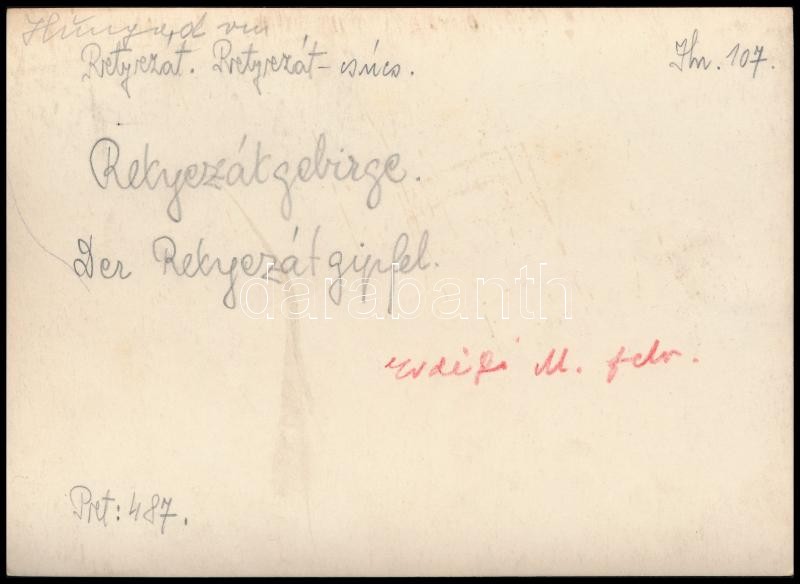 Hunyad vm
Retyezát. Retyezát-csúcs.
Jtn. 107.
Retyezátgebirge.
Der Retyezátgipfel.
darabanth
Erdélyi M. felv.
Pret: 487.